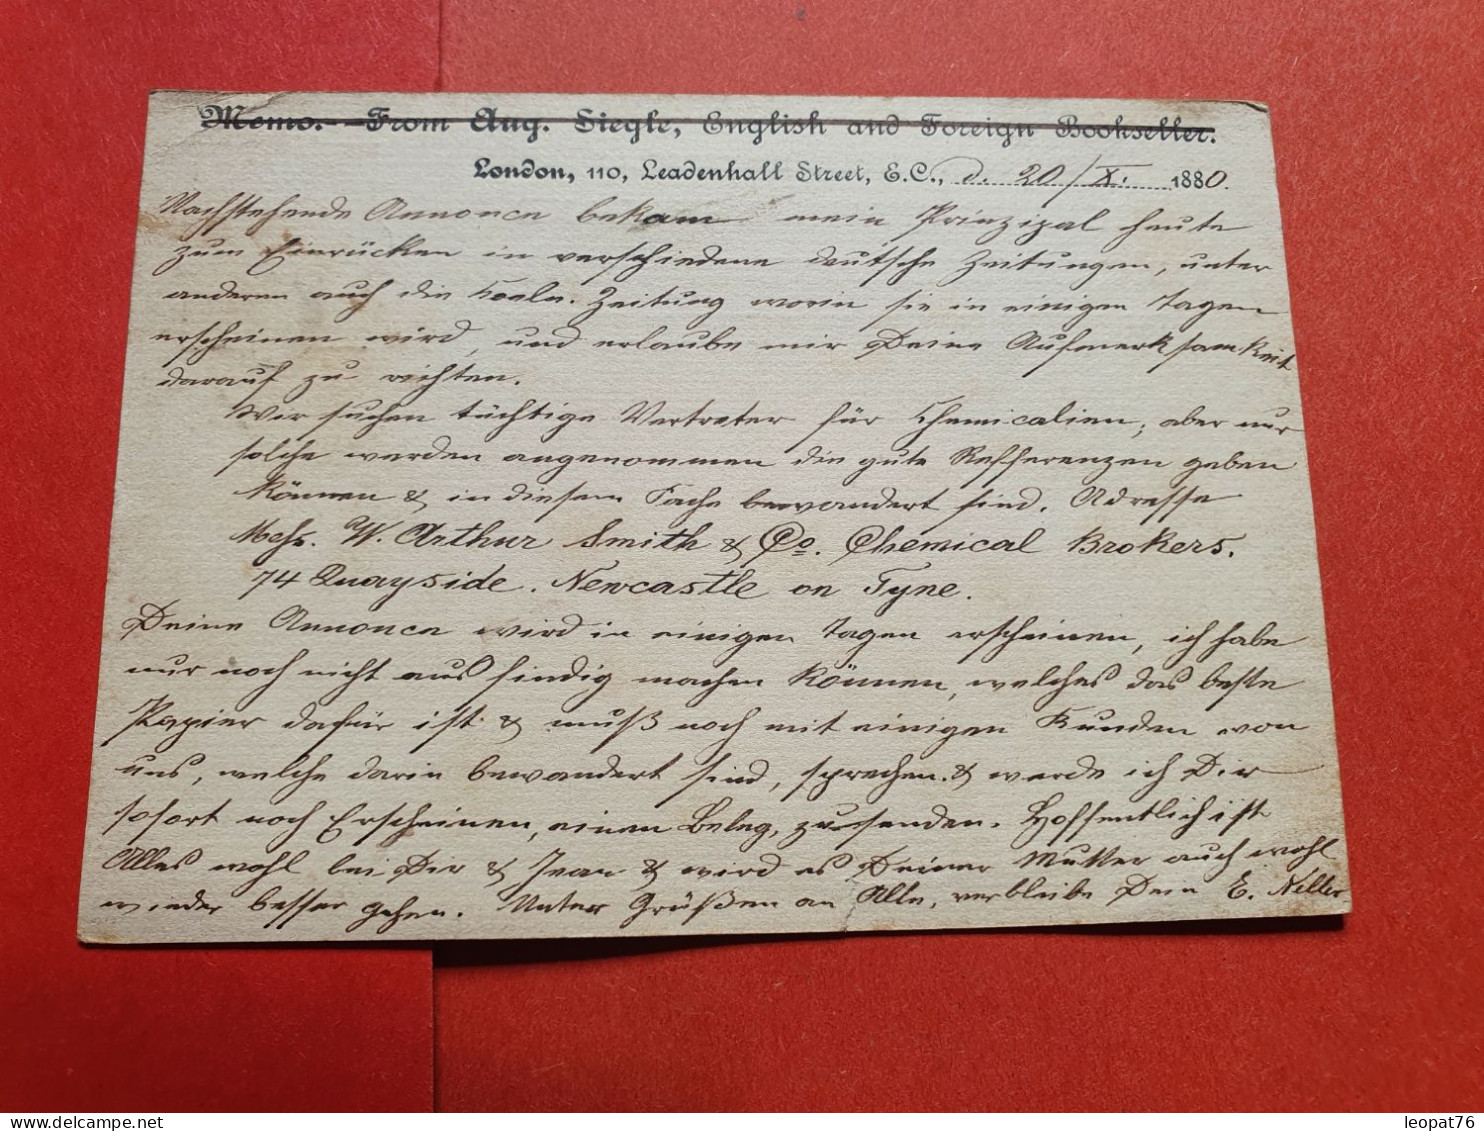 Memo.—From Aug. Siegle, English and Foreign Bookseller.
London, 110, Leadenhall Street, E.C., d. 20/XI. 1880.
Nachstehende Annonce bekam mein Prinzipal heute
zum Einrücken in verschiedene deutsche Zeitungen, unter
anderen auch die Koeln. Zeitung worin sie in einigen Tagen
erscheinen wird, und erlaube mir Deine Aufmerksamkeit
darauf zu richten.
Wir suchen tüchtige Vertreter für Chemicalien, aber nur
solche werden angenommen die gute Refferenzen geben
können & in diesem Fache bewandert sind. Adresse
Messs. W. Arthur Smith & Co. Chemical Brokers.
74 Quayside. Newcastle on Tyne.
Deine Annonce wird in einigen Tagen erscheinen, ich habe
nur noch nicht ausfindig machen können, welches das beste
Papier dafür ist & muß noch mit einigen Kunden von
uns, welche darin bewandert sind, sprechen. & werde ich Dir
sofort nach Erscheinen, einen Beleg, zusenden. Hoffentlich ist
Alles wohl bei Dir & Jean & wird es Deiner Mutter auch wohl
wieder besser gehen. Unter Grüßen an Alle, verbleibe Dein E.
leopat76